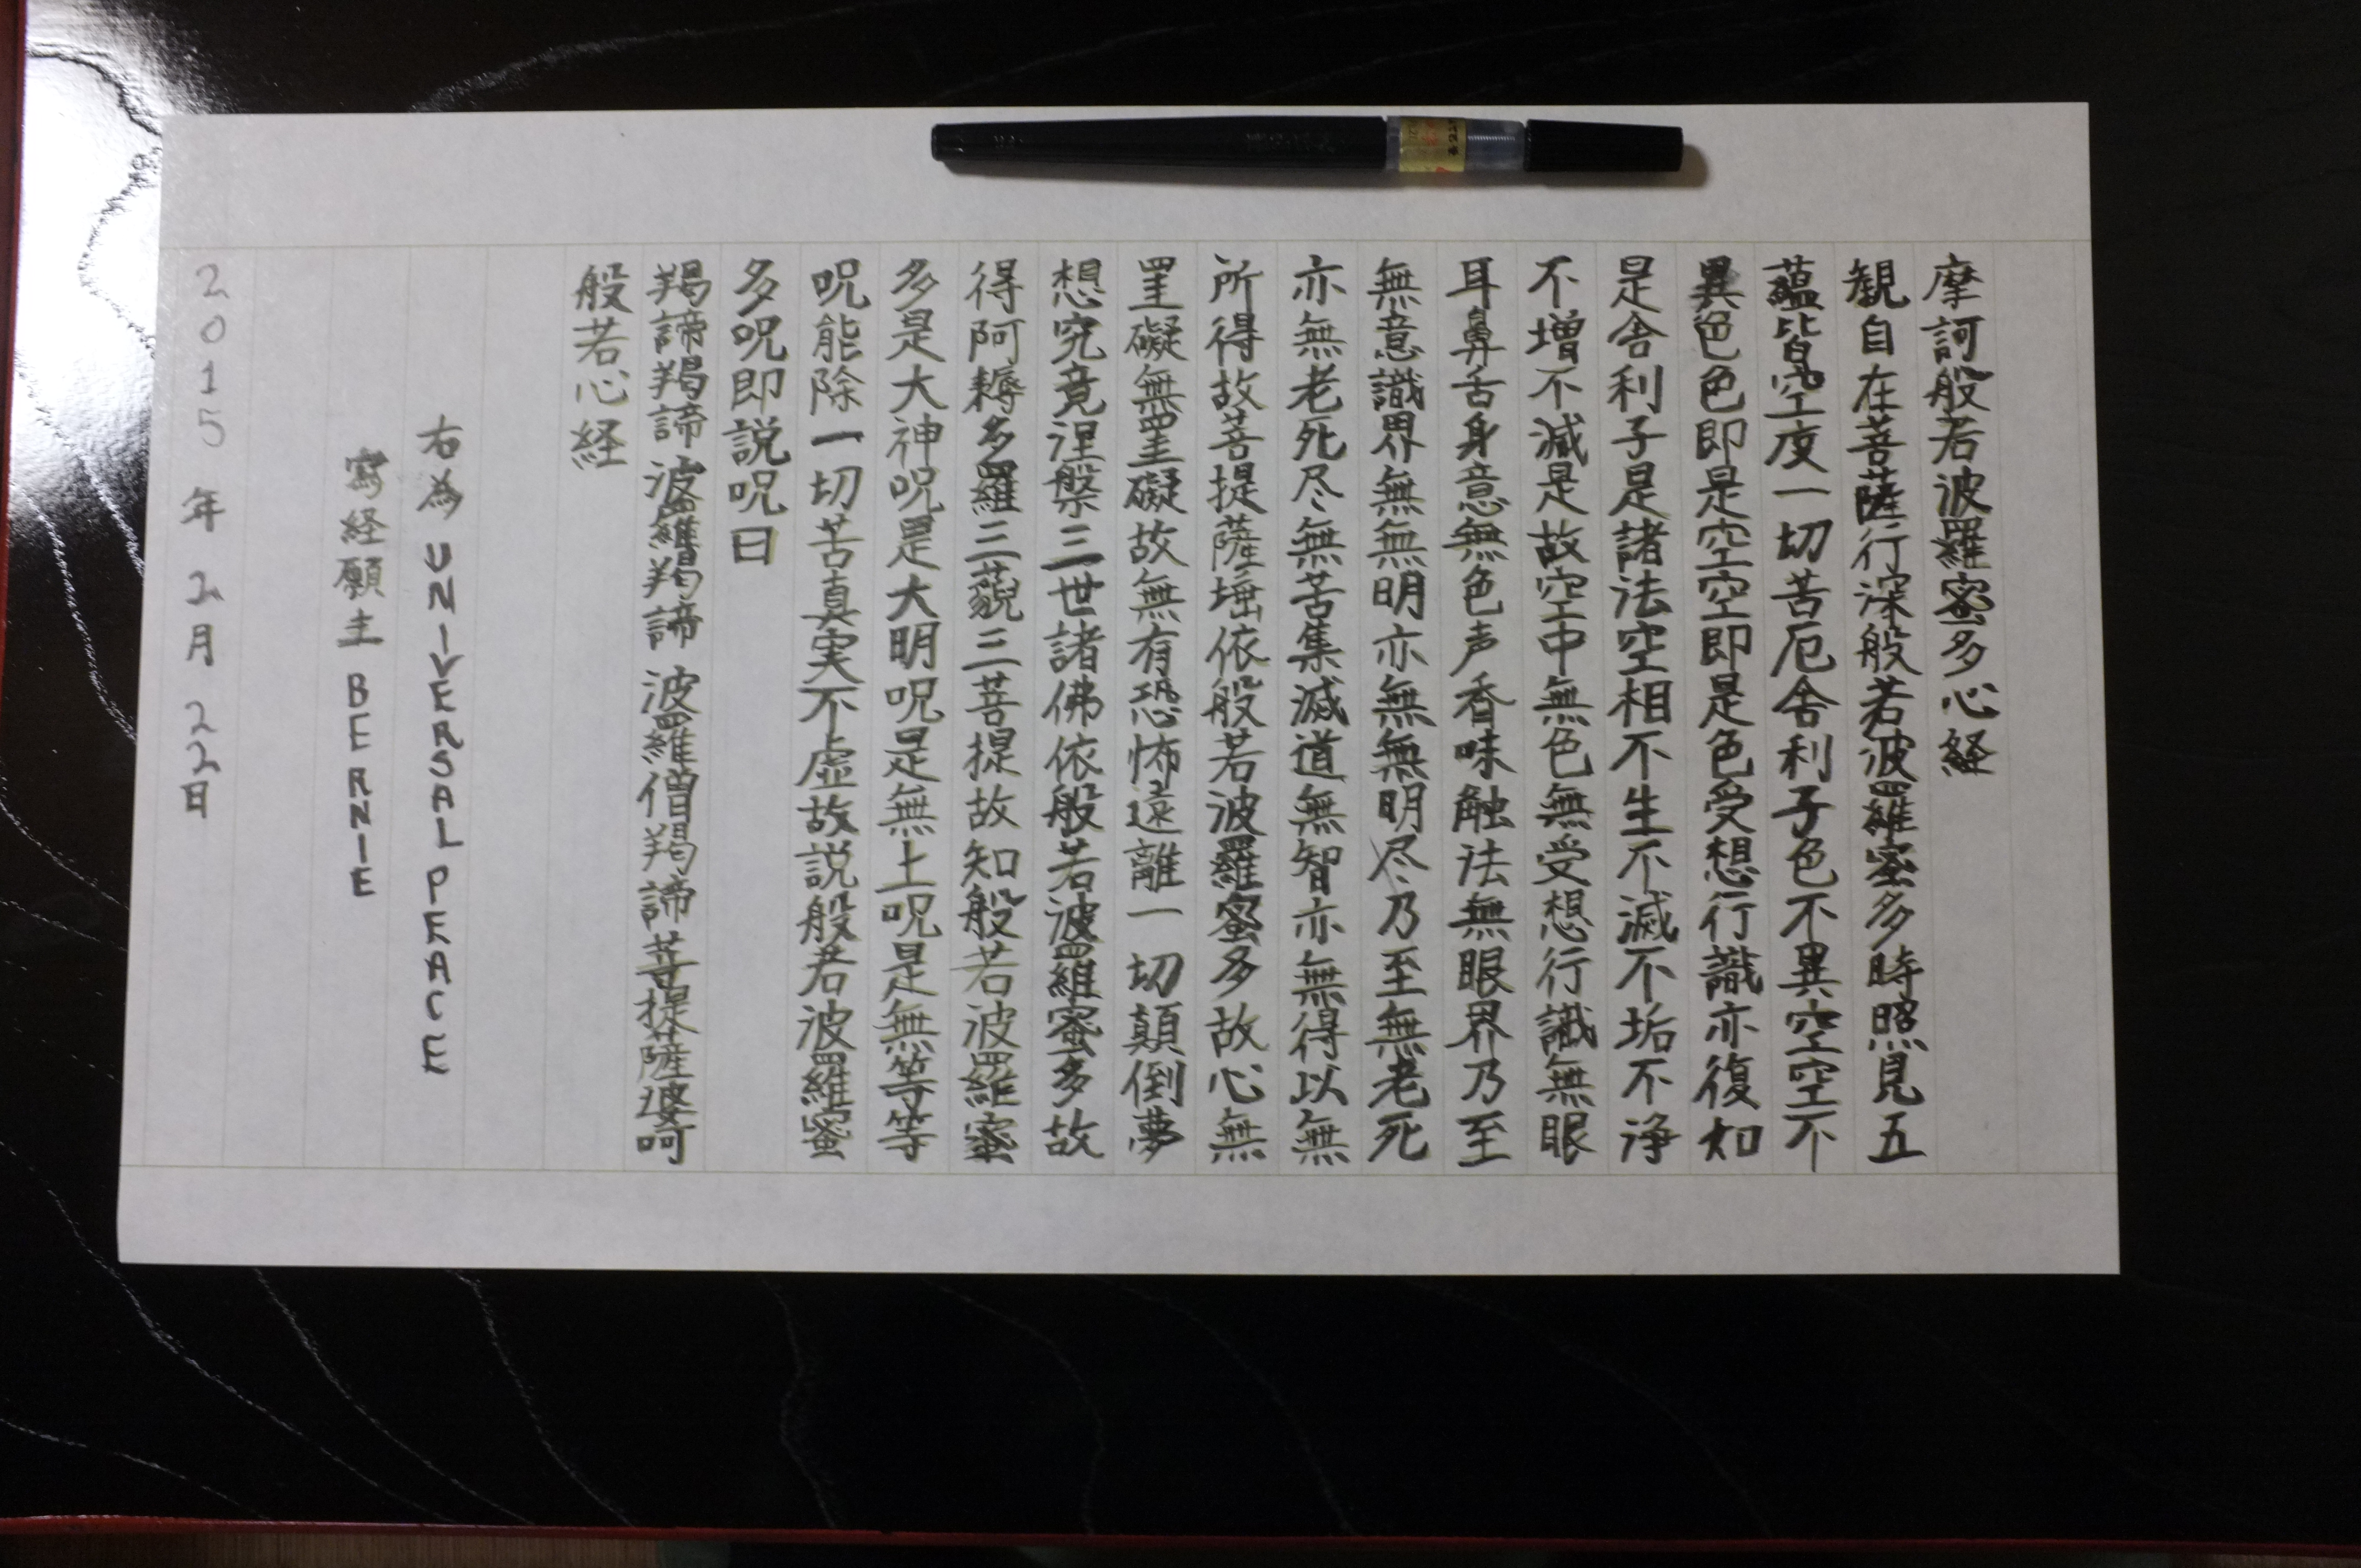 摩訶般若波羅蜜多心経
観自在菩薩行深般若波羅蜜多時照見五
蘊皆空度一切苦厄舎利子色不異空空不
異色色即是空空即是色受想行識亦復如
是舎利子是諸法空相不生不滅不垢不浄
不増不減是故空中無色無受想行識無眼
耳鼻舌身意無色声香味触法無眼界乃至
無意識界無無明亦無無明尽乃至無老死
亦無老死尽無苦集滅道無智亦無得以無
所得故菩提薩埵依般若波羅蜜多故心無
罣礙無罣礙故無有恐怖遠離一切顛倒夢
想究竟涅槃三世諸佛依般若波羅蜜多故
得阿耨多羅三藐三菩提故知般若波羅蜜
多是大神呪是大明呪是無上呪是無等等
呪能除一切苦真実不虚故説般若波羅蜜
多呪即説呪曰
羯諦羯諦波羅羯諦波羅僧羯諦菩提薩婆呵
般若心経
右為UNIVERSAL PEACE
写経願主BERNIE
2015年2月22日